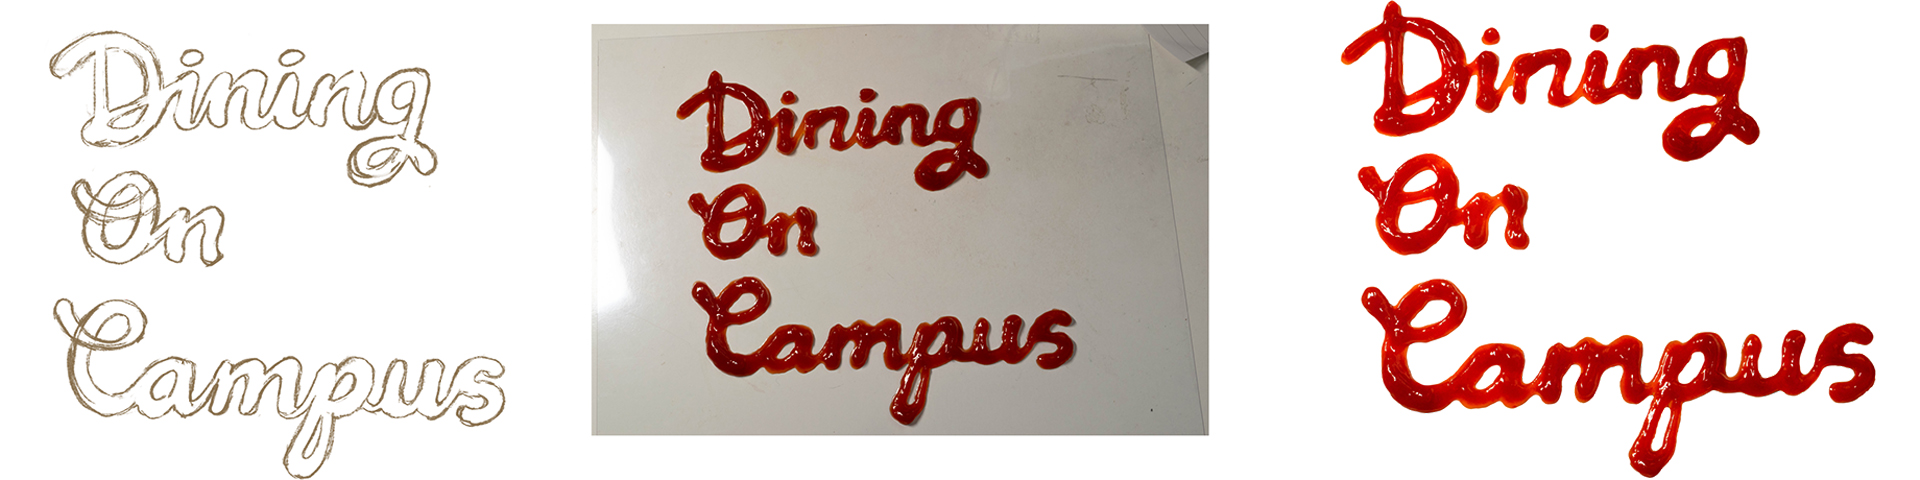 Dining
On
Campus
Dining
On
Campus
Dining
On
Campus